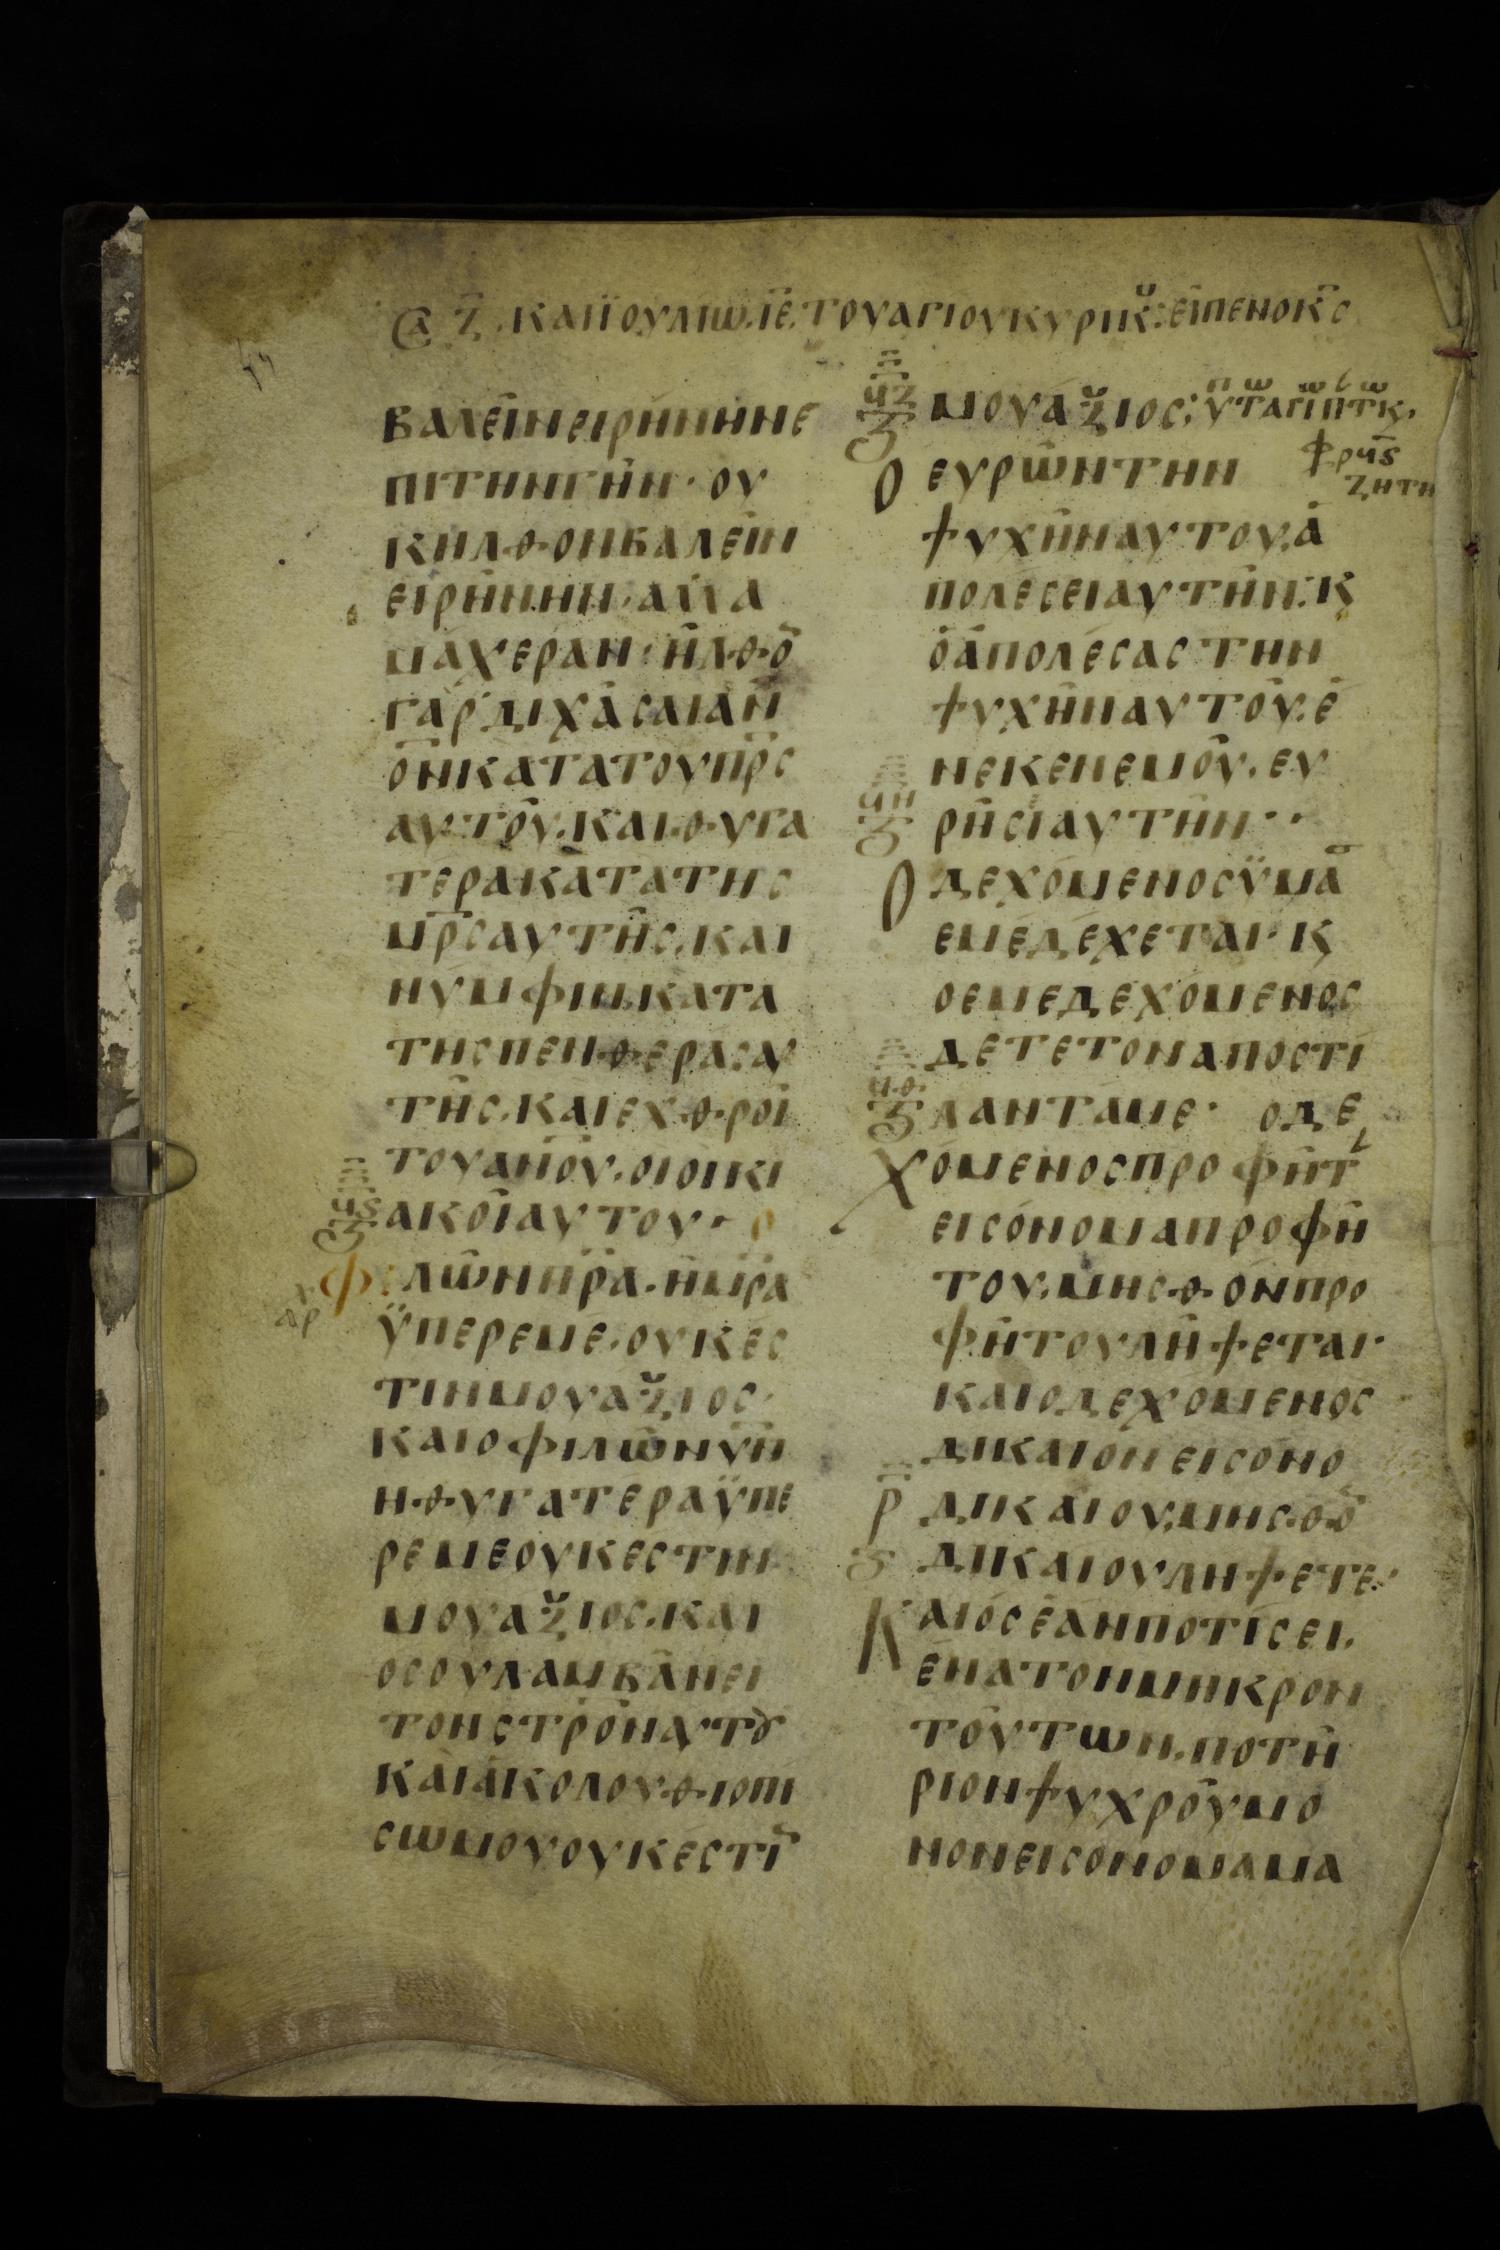 Ζ̅. ΚΑΙ ΪΟΥΛΙΩ. ΙΕ̅. ΤΟΥ ΑΓΙΟΥ ΚΥΡΙΚ: ΕΙΠΕΝ Ο Κ̅Σ
ΒΑΛΕΙΝ ΕΙΡΗΝΗΝ Ε
ΠΙ ΤΗΝ ΓΗΝ · ΟΥ
Κ ΗΛΘΟΝ ΒΑΛΕΙΝ
ΕΙΡΗΝΗΝ · ΑΛΛΑ
ΜΑΧΕΡΑΝ · ΗΛΘΟ̅
ΓΑΡ ΔΙΧΑΣΑΙ Α̅Ν̅
Ο̅Ν̅ ΚΑΤΑ ΤΟΥ Π̅Ρ̅Σ
ΑΥΤΟΥ. ΚΑΙ ΘΥΓΑ
ΤΕΡΑ ΚΑΤΑ ΤΗΣ
Μ̅Ρ̅Σ ΑΥΤΗΣ. ΚΑΙ
ΝΥΜΦΙΝ ΚΑΤΑ
ΤΗΣ ΠΕΝΘΕΡΑΣ ΑΥ
ΤΗΣ. ΚΑΙ ΕΧΘΡΟΙ
ΤΟΥ Α̅Ν̅ΟΥ. ΟΙ ΟΙΚΙ
Ϟϛ
ΑΚΟΙ ΑΥΤΟΥ · Ο
ΑΡΧ
ΦΙΛΩΝ Π̅Ρ̅Α. Η Μ̅Ρ̅Α
ΫΠΕΡ ΕΜΕ. ΟΥΚ ΕΣ
ΤΙΝ ΜΟΥ ΑΞΙΟΣ ·
ΚΑΙ Ο ΦΙΛΩΝ Υ̅Ν̅
Η ΘΥΓΑΤΕΡΑ ΫΠΕ
Ρ ΕΜΕ ΟΥΚ ΕΣΤΙΝ
ΜΟΥ ΑΞΙΟΣ. ΚΑΙ
ΟΣ ΟΥ ΛΑΜΒΑΝΕΙ
ΤΟΝ ΣΤΡΟΝ ΑΥΤȢ
ΚΑΙ ΑΚΟΛΟΥΘΙ ΟΠΙ
ΣΩ ΜΟΥ ΟΥΚ ΕΣΤΙ̅
ϞΖ
ΜΟΥ ΑΞΙΟΣ:
ΖΗΤΗ
Ο ΕΥΡΩΝ ΤΗΝ
ΨΥΧΗΝ ΑΥΤΟΥ. Α
ΠΟΛΕΣΕΙ ΑΥΤΗΝ: Κ
Ο ΑΠΟΛΕΣΑΣ ΤΗΝ
ΨΥΧΗΝ ΑΥΤΟΥ. Ε
ΝΕΚΕΝ ΕΜΟΥ. ΕΥ
ϞΗ
ΡΗΣΙ ΑΥΤΗΝ · ·
Ο ΔΕΧΟΜΕΝΟΣ ΫΜΑ̅Σ
ΕΜΕ ΔΕΧΕΤΑΙ · Κ
Ο ΕΜΕ ΔΕΧΟΜΕΝΟΣ
ΔΕΤΕ ΤΟΝ ΑΠΟΣΤΙ
ϞΘ
ΛΑΝΤΑ ΜΕ · Ο ΔΕ
ΧΟΜΕΝΟΣ ΠΡΟΦΗΤ
ΕΙΣ ΟΝΟΜΑ ΠΡΟΦΗ
ΤΟΥ. ΜΗΣΘΟΝ ΠΡΟ
ΦΗΤΟΥ ΛΗΨΕΤΑΙ ·
ΚΑΙ Ο ΔΕΧΟΜΕΝΟΣ
ΔΙΚΑΙΟΝ ΕΙΣ ΟΝΟ
Ρ
ΔΙΚΑΙΟΥ. ΜΗΣΘΟ̅
ΔΙΚΑΙΟΥ ΛΗΨΕΤΕ ·
ΚΑΙ ΟΣ ΕΑΝ ΠΟΤΙΣΕΙ.
ΕΝΑ ΤΟΝ ΜΗΚΡΟΝ
ΤΟΥΤΩΝ. ΠΟΤΗ
ΡΙΟΝ ΨΥΧΡΟΥ ΜΟ
ΝΟΝ ΕΙΣ ΟΝΟΜΑ ΜΑ